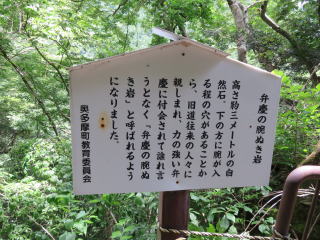 弁慶の腕ぬき岩
高さ約三メートルの自
然石、下の方に腕が入
る程の穴があることか
ら、旧道往来の人々に
親しまれ、力の強い弁
慶に付会されて誰れ言
うとなく「弁慶の腕ぬ
き岩」と呼ばれるよう
になりました。
奥多摩町教育委員会